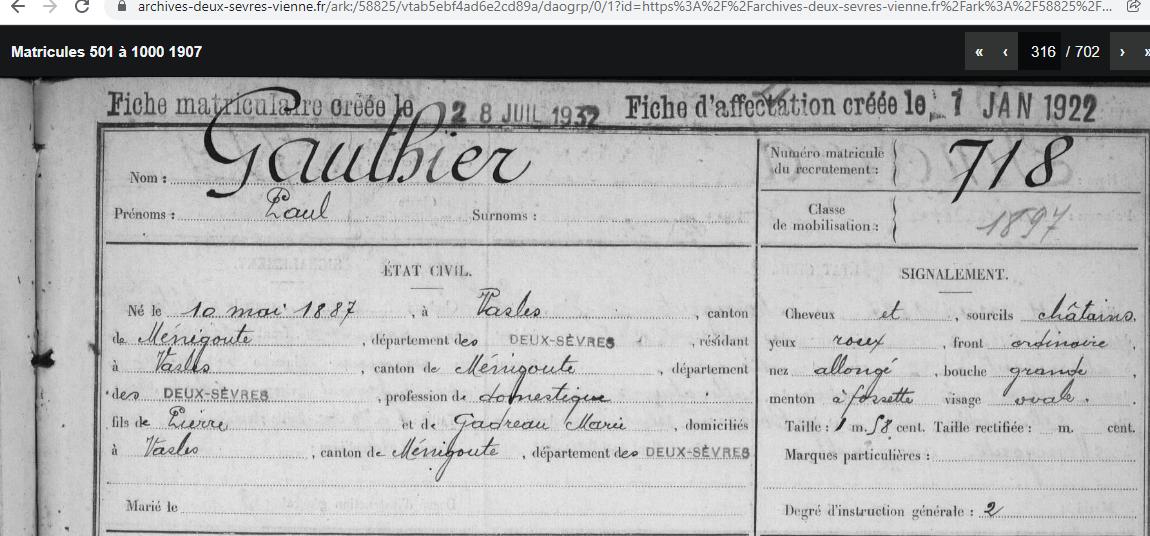 archives-deux-sevres-vienne.fr/ark:/58825/vtab5ebf4ad6e2cd89a/daogrp/0/1?id=https%3A%2F%2Farchives-deux-sevres-vienne.fr%2Fark%3A%2F58825%2F...
Matricules 501 à 1000 1907
« ‹ 316 / 702 › »
Fiche matriculaire créée le 28 JUIL 1932 Fiche d'affectation créée le 1 JAN 1922
Nom : Gauthier
Prénoms : Paul Surnoms :
Numéro matricule du recrutement : 718
Classe de mobilisation : 1897
ÉTAT CIVIL.
Né le 10 mai 1887, à Vasles, canton
de Ménigoute, département des DEUX-SÈVRES, résidant
à Vasles, canton de Ménigoute, département
des DEUX-SÈVRES, profession de domestique
fils de Pierre et de Gadreau Marie, domiciliés
à Vasles, canton de Ménigoute, département des DEUX-SÈVRES
Marié le
SIGNALEMENT.
Cheveux et, sourcils châtains,
yeux roux, front ordinaire
nez allongé, bouche grande,
menton à fossette visage ovale.
Taille : 1 m. 58 cent. Taille rectifiée : m. cent.
Marques particulières :
Degré d'instruction générale : 2